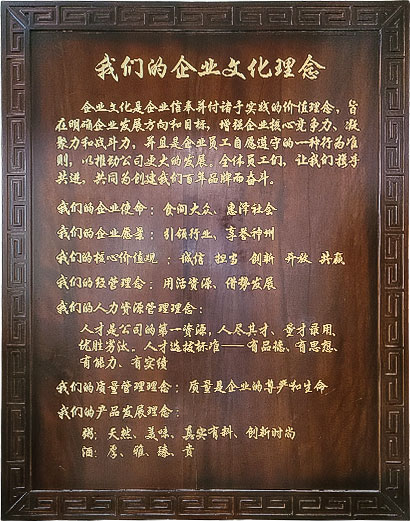 我们的企业文化理念
企业文化是企业信奉并付诸于实践的价值理念，旨
在明确企业发展方向和目标，增强企业核心竞争力、凝
聚力和战斗力，并且是企业员工自愿遵守的一种行为准
则，以推动公司更大的发展。全体员工们，让我们携手
共进，共同为创建我们百年品牌而奋斗。
我们的企业使命：食尚大众、惠泽社会
我们的企业愿景：引领行业、享誉神州
我们的核心价值观：诚信 担当 创新 开放 共赢
我们的经管理念：用活资源、借势发展
我们的人力资源管理理念：
人才是公司的第一资源，人尽其才、量才录用、
优胜劣汰。人才选拔标准——有品德、有思想、
有能力、有实绩
我们的质量管理理念：质量是企业的尊严和生命
我们的产品发展理念：
粥：天然、美味、真实有料、创新时尚
酒：厚、雅、臻、贵